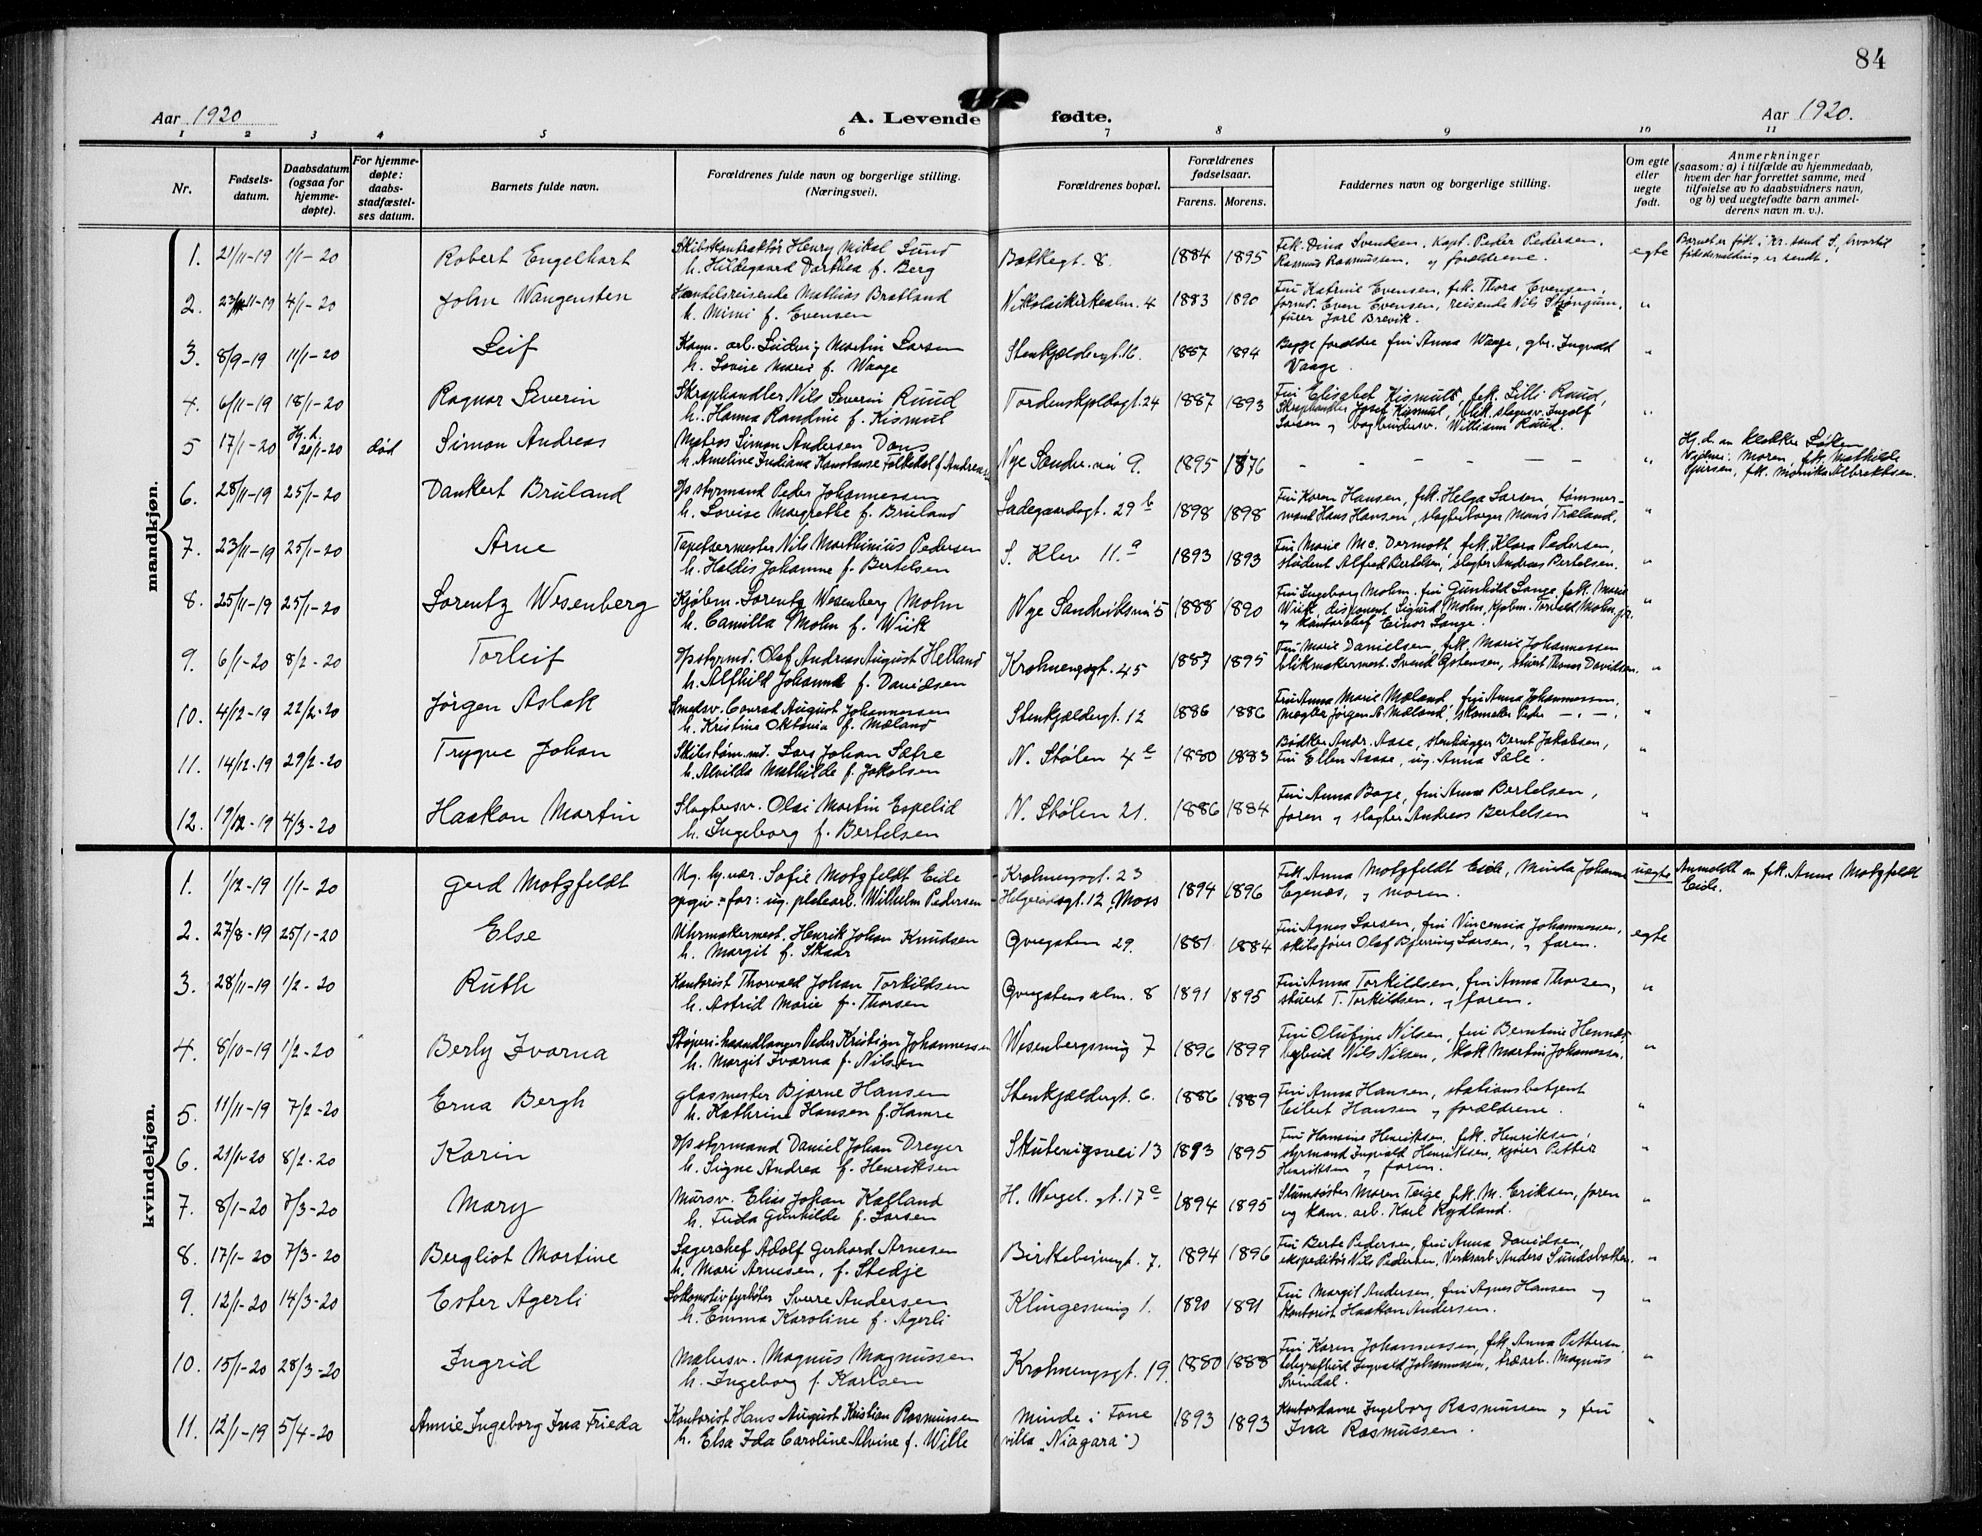 84
Aar 1920
A. Levende fødte.
Aar 1920.
1 2 3 4 5 6 7 8 9 10 11
Nr.
Fødsels-
datum.
Daabsdatum
(ogsaa for
hjemme-
døpte).
For hjemme-
døpte:
daabs-
stadfæstel-
ses datum.
Barnets fulde navn.
Forældrenes fulde navn og borgerlige stilling.
(Næringsvei).
Forældrenes bopæl.
Forældrenes
fødselsaar.
Farens. Morens.
Faddernes navn og borgerlige stilling.
Om egte
eller
uegte
født.
Anmerkninger
(saasom: a) i tilfælde av hjemmedaab,
hvem der har forrettet samme, med
tilføielse av to daabsvidners navn,
og b) ved uegtefødte barn anmel-
derens navn m. v.).
mandkjøn.
1. 21/11-19 1/1-20 Robert Engelhart
Skibskontraktør Henry Mikal Lund
h. Hildegaard Dorthea f. Berg
Bakkegt. 8. 1884 1895
Frk. Dina Svendsen, Kapt. Peder Pedersen,
Rasmus Rasmussen, og forældrene.
egte
Barnet er født i Kr. sand S., hvortil
fødselsmelding er sendt.
2. 23/11-19 4/1-20 John Wangensten
Handelsreisende Mathias Bratland
h. Mimi f. Evensen
Nikolaikirkealm. 4 1883 1890
Fru Katrine Evensen, frk. Thora Evensen,
formd. Even Evensen, reisende Nils
fører Jarl Brevik.
"
3. 8/9-19 11/1-20 Leif
Kom. arb. Ludvig Martin Larsen
h. Lovise Marie f. Waage
Stenkjeldergt. 16. 1887 1894
Begge forældre fru Anna Waage, gbr. Ingvald
Vaage.
"
4. 6/11-19 18/1-20 Ragnar Severin
Skraphandler Nils Severin Ruud
h. Hanna Randine f. Kismul
Tordenskjoldsgt. 24 1887 1893
Fru Elisabet Kismul, frk. Lilli Ruud,
Skraphandler Josef Kismul, blik. slagersv. Ingolf
Larsen og bogbindersv. William Ruud.
"
5 17/1-20 Hj. d. 20/1-20 død Simon Andreas
Matros Simon Andersen Dans
h. Ameline Juliana Konstanse Folkedal f. Andreasen
Nye Sandv. vei 9. 1895 1876
– – – – – –
"
Hj. d. av klokker Løken
Vidner: Moren, frk. Mathilde
frk. Monika Albrektsen.
6. 28/11-19 25/1-20 Dankert Bruland
Op styrmand Peder Johannessen
h. Lovise Margrethe f. Bruland
Ladegaardsgt. 29 b 1898 1898
Fru Karen Hansen, frk. Helga Larsen, tømmer-
mand Hans Hansen, slagterborger Mons Træland.
"
7. 23/11-19 25/1-20 Arne
Tapetsermester Nils Marthinius Pedersen
h. Haldis Johanne f. Bertelsen
S. Klev 11. a 1893 1893
Fru Marie Mc. Dermott, frk. Klara Pedersen,
student Alfred Bertelsen, slagter Andreas Bertelsen.
"
8. 25/11-19 25/1-20 Lorentz Wesenberg
Kjøbm. Lorentz Wesenberg Mohn
h. Camilla Mohn f. Wiik
Nye Sandviksvei 5 1888 1890
Fru Ingeborg Mohn, fru Gunhild Lange, frk. Marie
Wiik, disponent Sigurd Mohn, kjøbm. Torvald Mohn jr.
og kontorchef Einar Lange.
"
9. 6/1-20 8/2-20 Torleif
Op styrmd. Olaf Andreas August Helland
h. Alfhild Johanne f. Davidsen
Krohnengsgt. 45 1887 1895
Fru Marie Danielsen, frk. Marie Johannessen
blikmakermest. Svend Gstensen, stuert Thomas Davidsen.
"
10. 4/12-19 22/2-20 Jørgen Aslak
Smedsv. Conrad August Johannessen
h. Kristine Oktovia f. Mæland
Stenkjeldergt. 12 1886 1886
Fru Anna Marie Mæland, fru Anna Johannessen,
mægler Jørgen A. Mæland, skomaker Peder – " –.
"
11. 14/12-19 29/2-20 Trygve Johan
Skibstøm. md. Lars Johan Sætre
h. Alvilda Mathilde f. Jakobsen
N. Stølen 4 e 1880 1883
Bødker Andr. Aase, stenhugger Bernt Jakobsen,
Fru Ellen Aase, ug. Anna Sæle.
"
12. 19/12-19 4/3-20 Haakon Martin
Slagtersv. Olai Martin Espelid
h. Ingeborg f. Bertelsen
N. Stølen 21. 1886 1884
Fru Anna Boge, fru Anna Bertelsen,
faren og slagter Andreas Bertelsen
"
kvindekjøn.
1. 1/12-19 1/1-20 Gerd Motzfeldt
Ug. hj. vær. Sofie Motzfeldt Eide
opgiv. far: ug. platearb. Wilhelm Pedersen
Krohnengsgt. 23
Helgerødsgt. 12, Moss
1894 1896
Frk. Anna Motzfeldt Eide, Minda Johanne
Egenæs, og moren.
uegte
Anmeldt av frk. Anna Motzfeldt
Eide.
2. 27/8-19 25/1-20 Else
Uhrmakermest. Henrik Johan Knudsen
h. Margit f. Skaar
Øvregaten 29. 1881 1884
Fru Agnes Larsen, fru Vincensia Johannessen,
skibsfører Olaf Bjerring Larsen, og faren.
egte
3. 28/11-19 1/2-20 Ruth
Kontorist Thorvald Johan Torkildsen
h. Astrid Marie f. Thorsen
Øvregatens alm. 8 1891 1895
Fru Anna Torkildsen, fru Anna Thorsen,
stuert T. Torkildsen, og faren.
"
4. 8/10-19 1/2-20 Berly Ivarna
Støperi-haandlanger Peder Kristian Johannessen
h. Margit Ivarna f. Nilsen
Wesenbergsmug 7 1896 1899
Fru Olufine Nilsen, fru Berntine Hennes,
bybud Nils Nilsen, kok Martin Johannessen.
"
5. 11/11-19 7/2-20 Erna Bergh
Glasmester Bjarne Hansen
h. Kathrine Hansen f. Hamre
Stenkjeldergt. 6. 1886 1889
Fru Anna Hansen, stationsbetjent
Eilert Hansen og forældrene.
"
6. 21/1-20 8/2-20 Karin
Op styrmand Daniel Johan Dreyer
h. Signe Andrea f. Henriksen
Skuteviksvei 13 1893 1895
Fru Hansine Henriksen, frk. Henriksen,
styrmand Ingvald Henriksen, kjører Petter
Henriksen og faren.
"
7. 8/1-20 7/3-20 Mary
Mursv. Elias Johan Kalland
h. Frida Gunhilde f. Larsen
H. Wergel. gt. 17 c 1894 1895
Slumsøster Maren Teige, frk. M. Eriksen, faren
og kom. arb. Karl Rydland.
"
8. 17/1-20 7/3-20 Bergliot Martine
Lagerchef Adolf Gerhard Arnesen
h. Mari Arnesen, f. Stedje
Birkebeinergt. 7. 1894 1896
Fru Berte Pedersen, fru Anna Davidsen,
ekspeditør Nils Pedersen, Verksarb. Anders Sundsbakken.
"
9. 12/1-20 14/3-20 Ester Agerli
Lokomotivfyrbøter Sverre Andersen
h. Emma Karoline f. Agerli
Klingesmug 1. 1890 1891
Fru Margit Andersen, fru Agnes Hansen og
kontorist Haakon Andersen.
"
10. 15/1-20 28/3-20 Ingrid
Malersv. Magnus Magnussen
h. Ingeborg f. Karlsen
Krohnengsgt. 19. 1880 1888
Fru Karen Johannessen, frk. Anna Pettersen,
telegrafbud Ingvald Johannessen, træarb. Magnus
Svindal.
"
11. 12/1-19 5/4-20 Annie Ingeborg Ina Frieda
Kontorist Hans August Kristian Rasmussen
h. Elsa Ida Caroline Alvine f. Wille
Minde i Fane
(villa „Niagara")
1893 1893
Kontordame Ingeborg Rasmussen og fru
Ina Rasmussen.
"